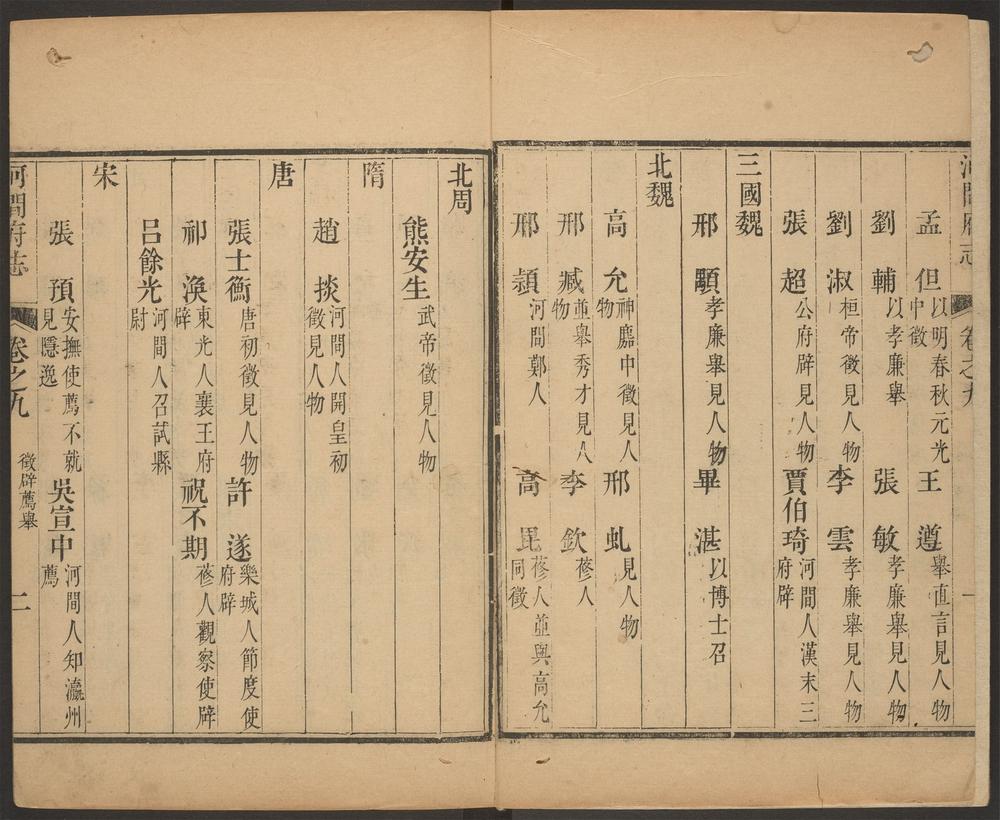 河間府志 卷之九 一
孟但 以明春秋元光中徵 王遵 舉直言見人物
劉輔 以孝廉舉 張敏 孝廉舉見人物
劉淑 桓帝徵見人物 李雲 孝廉舉見人物
張超 公府辟見人物 賈伯琦 河間人漢末三府辟
三國魏
邢顒 孝廉舉見人物 畢湛 以博士召
北魏
高允 神䴥中徵見人物 邢虬 見人物
邢臧 並舉秀才見人物 李欽 蓨人
邢頴 河間鄭人 高毘 蓨人並與高允同徵
北周
熊安生 武帝徵見人物
隋
趙掞 河間人開皇初徵見人物
唐
張士衡 唐初徵見人物 許遂 樂城人節度使府辟
祁渙 東光人襄王府辟 祝不期 蓨人觀察使辟
呂餘光 河間人召試縣尉
宋
張預 安撫使薦不就見隱逸 吳宣中 河間人知瀛州薦
河間府志 卷之九 徵辟薦舉 二